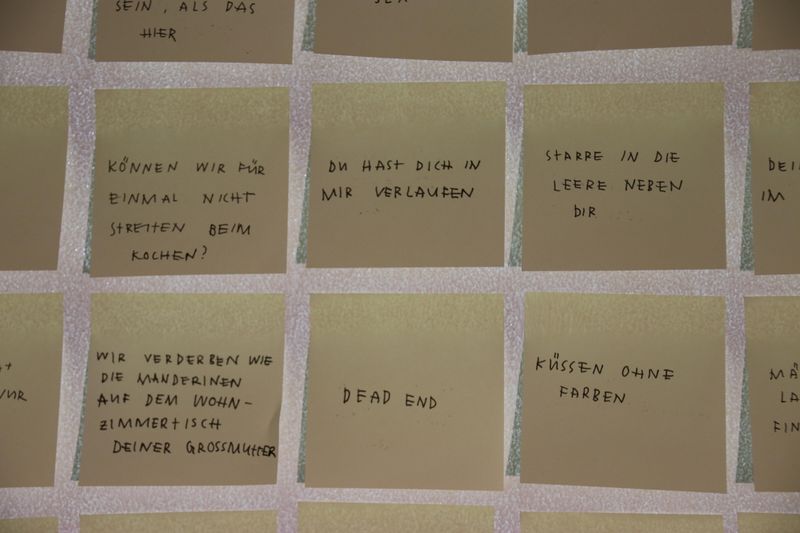 SEIN, ALS DAS
HIER
KÖNNEN WIR FÜR
EINMAL NICHT
STREITEN BEIM
KOCHEN?
DU HAST DICH IN
MIR VERLAUFEN
STARRE IN DIE
LEERE NEBEN
DIR
IM
WIR VERDERBEN WIE
DIE MANDERINEN
AUF DEM WOHN-
ZIMMERTISCH
DEINER GROSSMUTTER
DEAD END
KÜSSEN OHNE
FARBEN